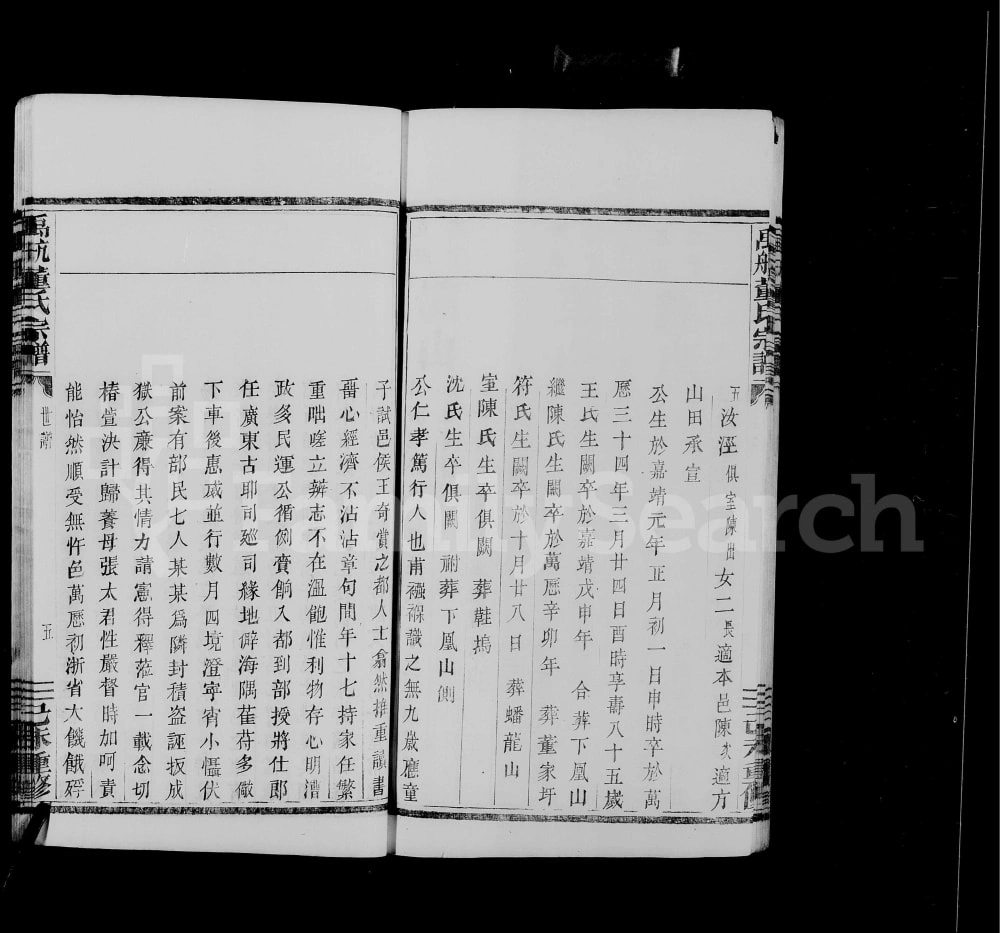 禹航董氏宗譜
五
汝涇俱室陳出女二長適本邑陳次適方
山田承宣
公生於嘉靖元年正月初一日申時卒於萬
厯三十四年三月廿四日酉時享壽八十五歲
王氏生闕卒於嘉靖戊申年 合葬下凰山
繼陳氏生闕卒於萬厯辛卯年 葬董家圩
符氏生闕卒於十月廿八日 葬蟠龍山
室陳氏生卒俱闕 葬鞋塢
沈氏生卒俱闕 祔葬下凰山側
公仁孝篤行人也甫襁褓識之無九歲應童
子試邑侯王奇賞之都人士翕然推重讀書
畱心經濟不沾沾章句間年十七持家任繁
重咄嗟立辦志不在溫飽惟利物存心明漕
政多民運公循例賫餉入都到部授將仕郎
任廣東古耶司廵司緣地僻海隅萑苻多儆
下車後惠威並行數月四境澄寧宵小懾伏
前案有部民七人某某爲隣封積盜誣扳成
獄公亷得其情力請憲得釋蒞官一載念切
椿萱決計歸養母張太君性嚴督時加呵責
能怡然順受無忤色萬厯初浙省大饑餓殍
禹航董氏宗譜
世譜
五
己未重修
FamilySearch